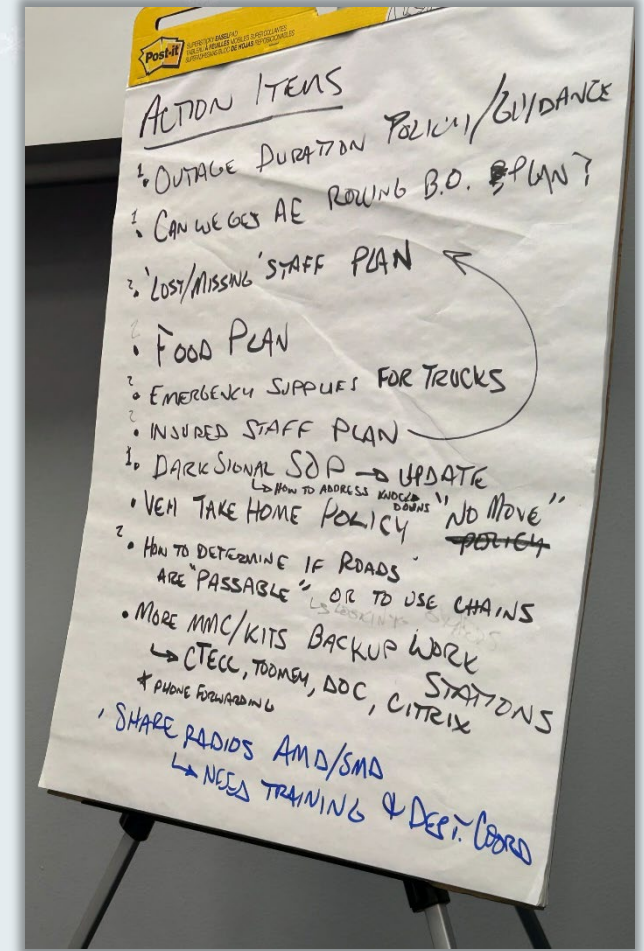 Post-it
SUPERSTICKY EASELPAD
ACTION ITEMS
1. OUTAGE DURATION POLICY/GUIDANCE
1. CAN WE GET AE ROLLING B.O. PLAN?
2. 'LOST/MISSING' STAFF PLAN
2. FOOD PLAN
2. EMERGENCY SUPPLIES FOR TRUCKS
2. INSURED STAFF PLAN
1. DARK SIGNAL SOP → UPDATE
↳ HOW TO ADDRESS KNOCK DOWNS
• VEH TAKE HOME POLICY "NO MOVE"
POLICY
2. HOW TO DETERMINE IF ROADS
ARE "PASSABLE" OR TO USE CHAINS
• MORE MMC/KITS BACKUP WORK
STATIONS
↳ CTECC, TOOMEY, DOC, CITRIX
* PHONE FORWARDING
• SHARE RADIOS AMD/SMD
↳ NEED TRAINING & DEPT. COORD